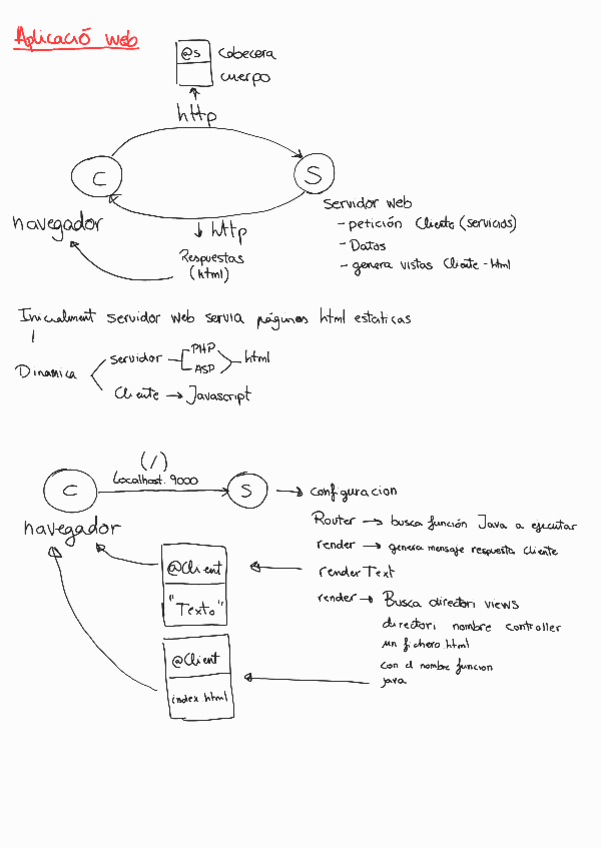 Aplicació web
@s cabecera
cuerpo
http
C
S
navegador
http
Respuestas
(html)
Servidor web
- petición Cliente (servicios)
- Datos
- genera vistas Cliente - html
Inicialment servidor web servia páginas html estaticas
Dinamica
servidor
PHP
ASP
html
Cliente → Javascript
(/)
Localhost. 9000
C
S
→ configuracion
navegador
Router → busca función Java a ejecutar
render → genera mensaje respuesta cliente
@Client
renderText
"Texto"
render → Busca directori views
directori nombre controller
un fichero html
con el nombre funcion
java
@Client
index html